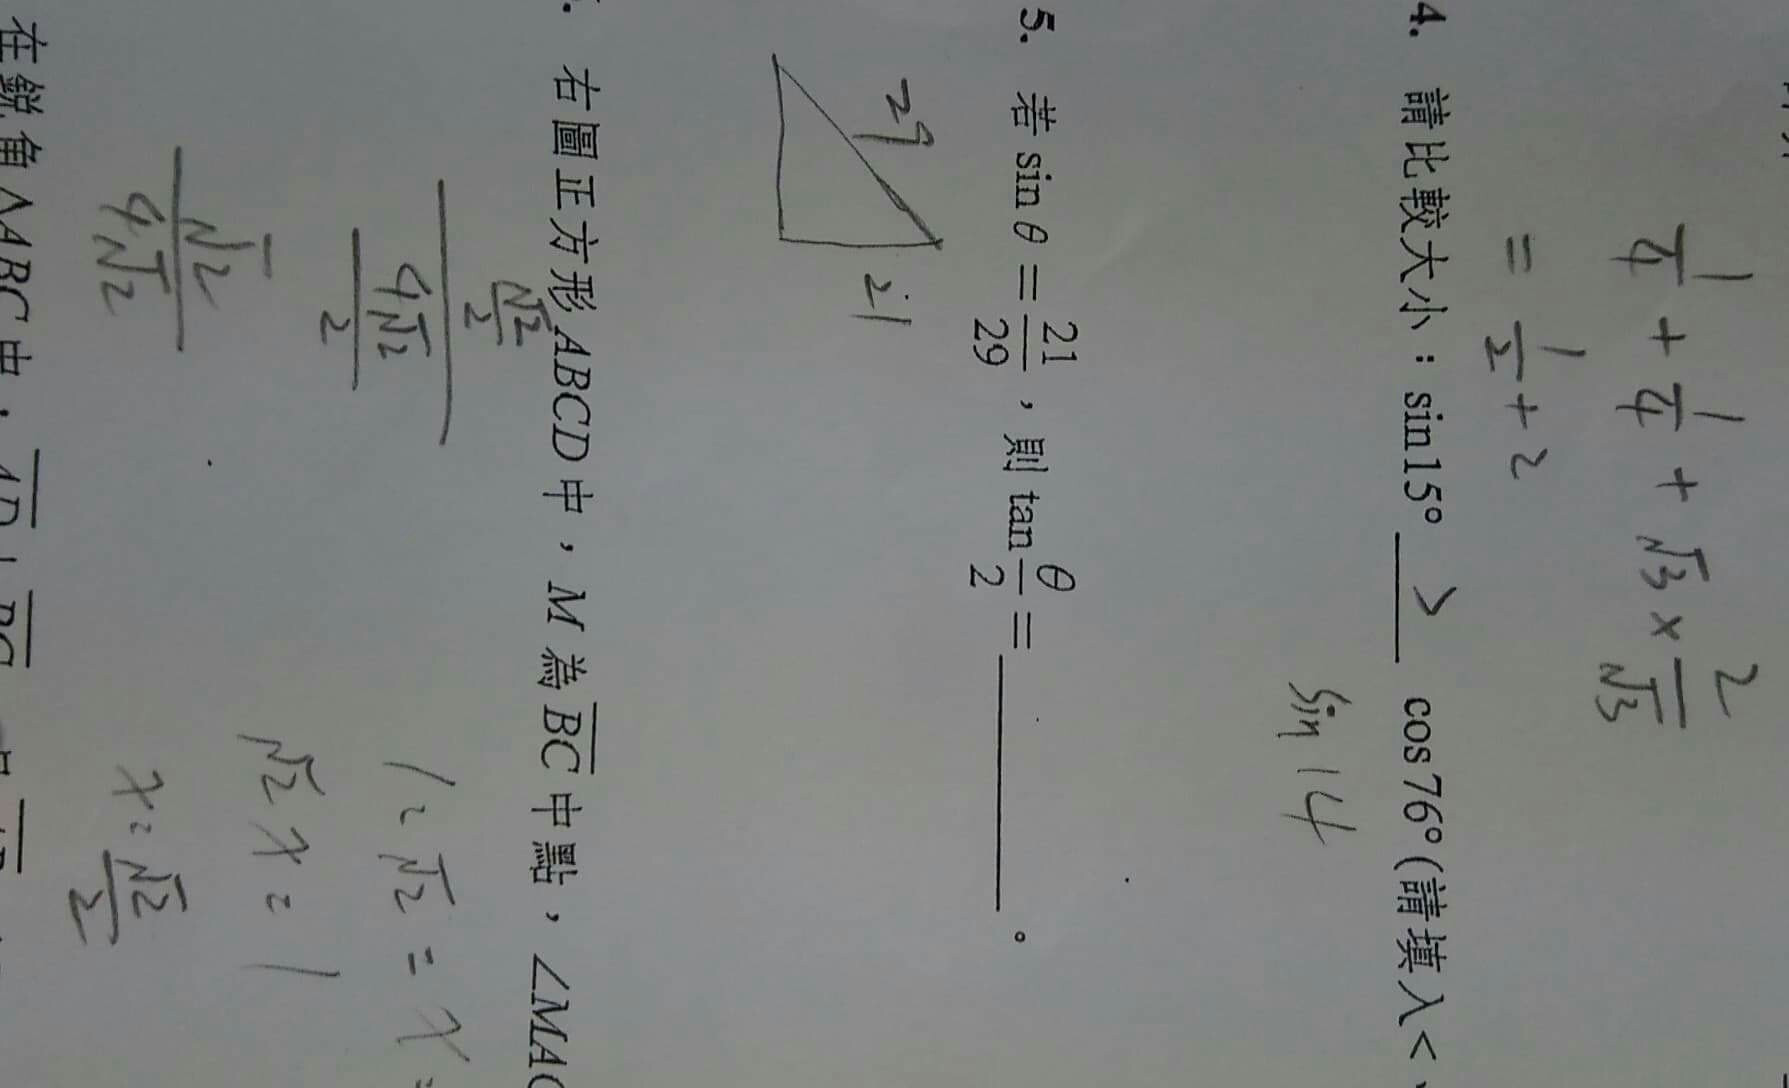 1/4 + 1/4 + √3 × 2/√3
= 1/2 + 2
4. 請比較大小：sin15° > cos76°(請填入<、
sin 14
5. 若 sin θ = 21/29，則 tan θ/2 = ________。
29
21
右圖正方形ABCD中，M 為 BC 中點，∠MAC
√2/2
4√2/2
1 : √2 = x :
√2
4√2
√2 x = 1
x = √2/2
在銳角△ABC中，AD⊥BC